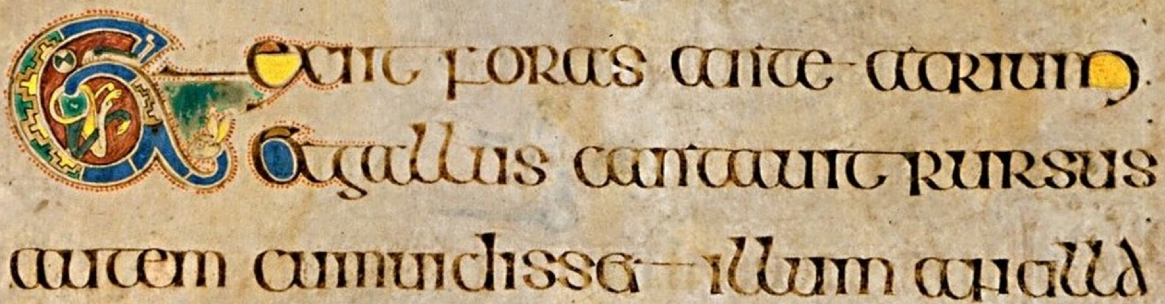 Et exiit foras ante atrium
Et gallus cantauit rursus
autem cum uidisset illum ancilla